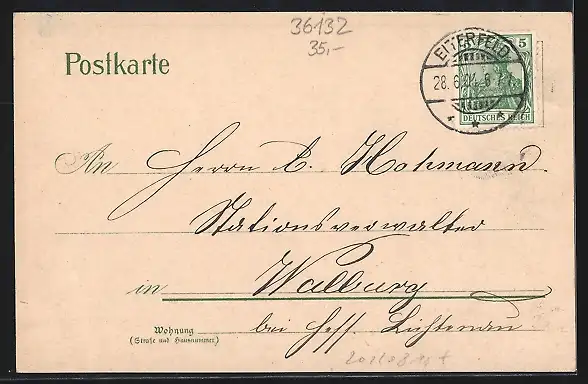 36132
35,-
Postkarte
EITERFELD
28. 6.
5
DEUTSCHES REICH
An Herrn C. Hohmann
Stationsverwalter
in Walburg
Wohnung
(Straße und Hausnummer)
bei Hess. Lichtenau